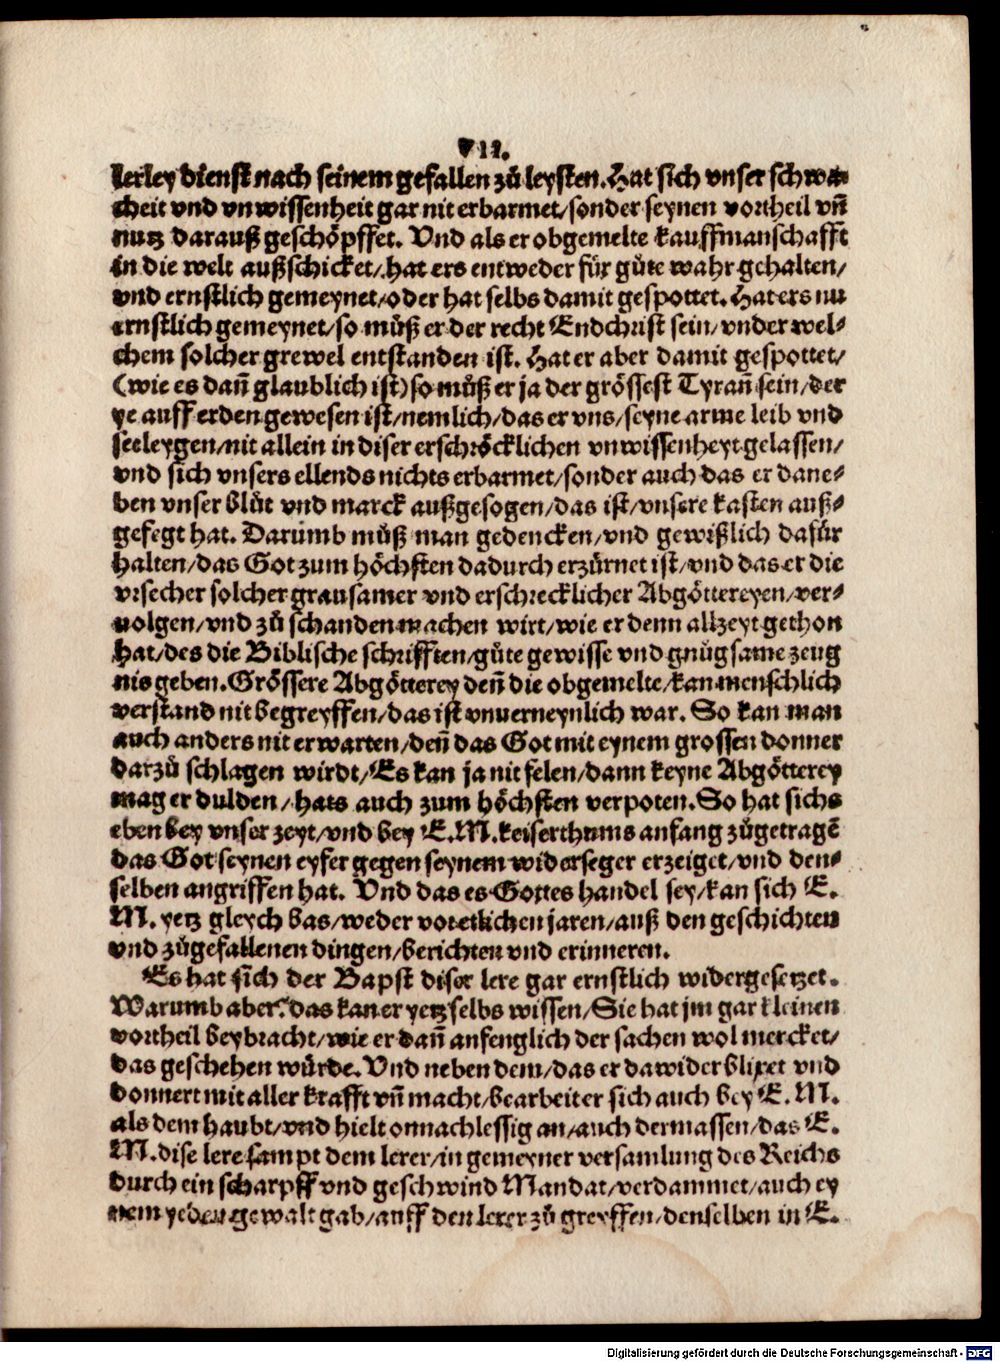 VII.
lerley dienst nach seinem gefallen zů leysten. Hat sich vnser schwa-
cheit vnd vnwissenheit gar nit erbarmet/sonder seynen vortheil vñ
nutz darauß geschöpffet. Vnd als er obgemelte kauffmanschafft
in die welt außschicket/hat ers entweder für gůte wahr gehalten/
vnd ernstlich gemeynet/oder hat selbs damit gespottet. Hat ers nu
ernstlich gemeynet/so můß er der recht Endchrist sein/vnder wel-
chem solcher grewel entstanden ist. Hat er aber damit gespottet/
(wie es dañ glaublich ist) so můß er ja der grössest Tyrañ sein/der
ye auff erden gewesen ist/nemlich/das er vns/seyne arme leib vnd
seeleygen/nit allein in diser erschröcklichen vnwissenheyt gelassen/
vnd sich vnsers ellends nichts erbarmet/sonder auch das er dane-
ben vnser blůt vnd marck außgesogen/das ist/vnsere kasten auß-
gefegt hat. Darumb můß man gedencken/vnd gewißlich dafür
halten/das Got zum höchsten dadurch erzürnet ist/vnd das er die
vrsecher solcher grausamer vnd erschrecklicher Abgöttereyen/ver-
uolgen/vnd zů schanden machen wirt/wie er denn allzeyt gethon
hat/des die Biblische schrifften/gůte gewisse vnd gnůgsame zeug
nis geben. Grössere Abgötterey deñ die obgemelte/kan menschlich
verstand nit begreyffen/das ist vnuerneynlich war. So kan man
auch anders nit erwarten/deñ das Got mit eynem grossen donner
darzů schlagen wirdt/Es kan ja nit felen/dann keyne Abgötterey
mag er dulden/hats auch zum höchsten verpoten. So hat sichs
eben bey vnser zeyt/vnd bey E. M. keiserthums anfang zůgetragē
das Got seynen eyfer gegen seynem widerseger erzeiget/vnd den-
selben angriffen hat. Vnd das es Gottes handel sey/kan sich E.
M. yetz gleych bas/weder vor etlichen jaren/auß den geschichten
vnd zůgefallenen dingen/berichten vnd erinneren.
Es hat sich der Bapst diser lere gar ernstlich widergesetzet.
Warumb aber? das kan er yetz selbs wissen/Sie hat jm gar kleinen
vortheil beybracht/wie er dañ anfenglich der sachen wol mercket/
das geschehen würde. Vnd neben dem/das er dawider blixet vnd
donnert mit aller krafft vñ macht/bearbeit er sich auch bey E. M.
als dem haubt/vnd hielt onnachlessig an/auch dermassen/das E.
M. dise lere sampt dem lerer/in gemeyner versamlung des Reichs
durch ein scharpff vnd geschwind Mandat/verdammet/auch ey
nem yeden gewalt gab/auff den lerer zů greyffen/denselben in E.
Digitalisierung gefördert durch die Deutsche Forschungsgemeinschaft - DFG